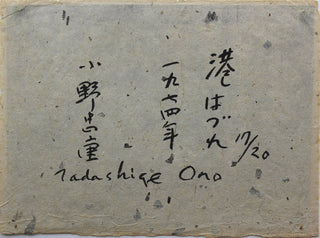 港はづれ 17/20
一九七四年
小野忠重
Tadashige Ono